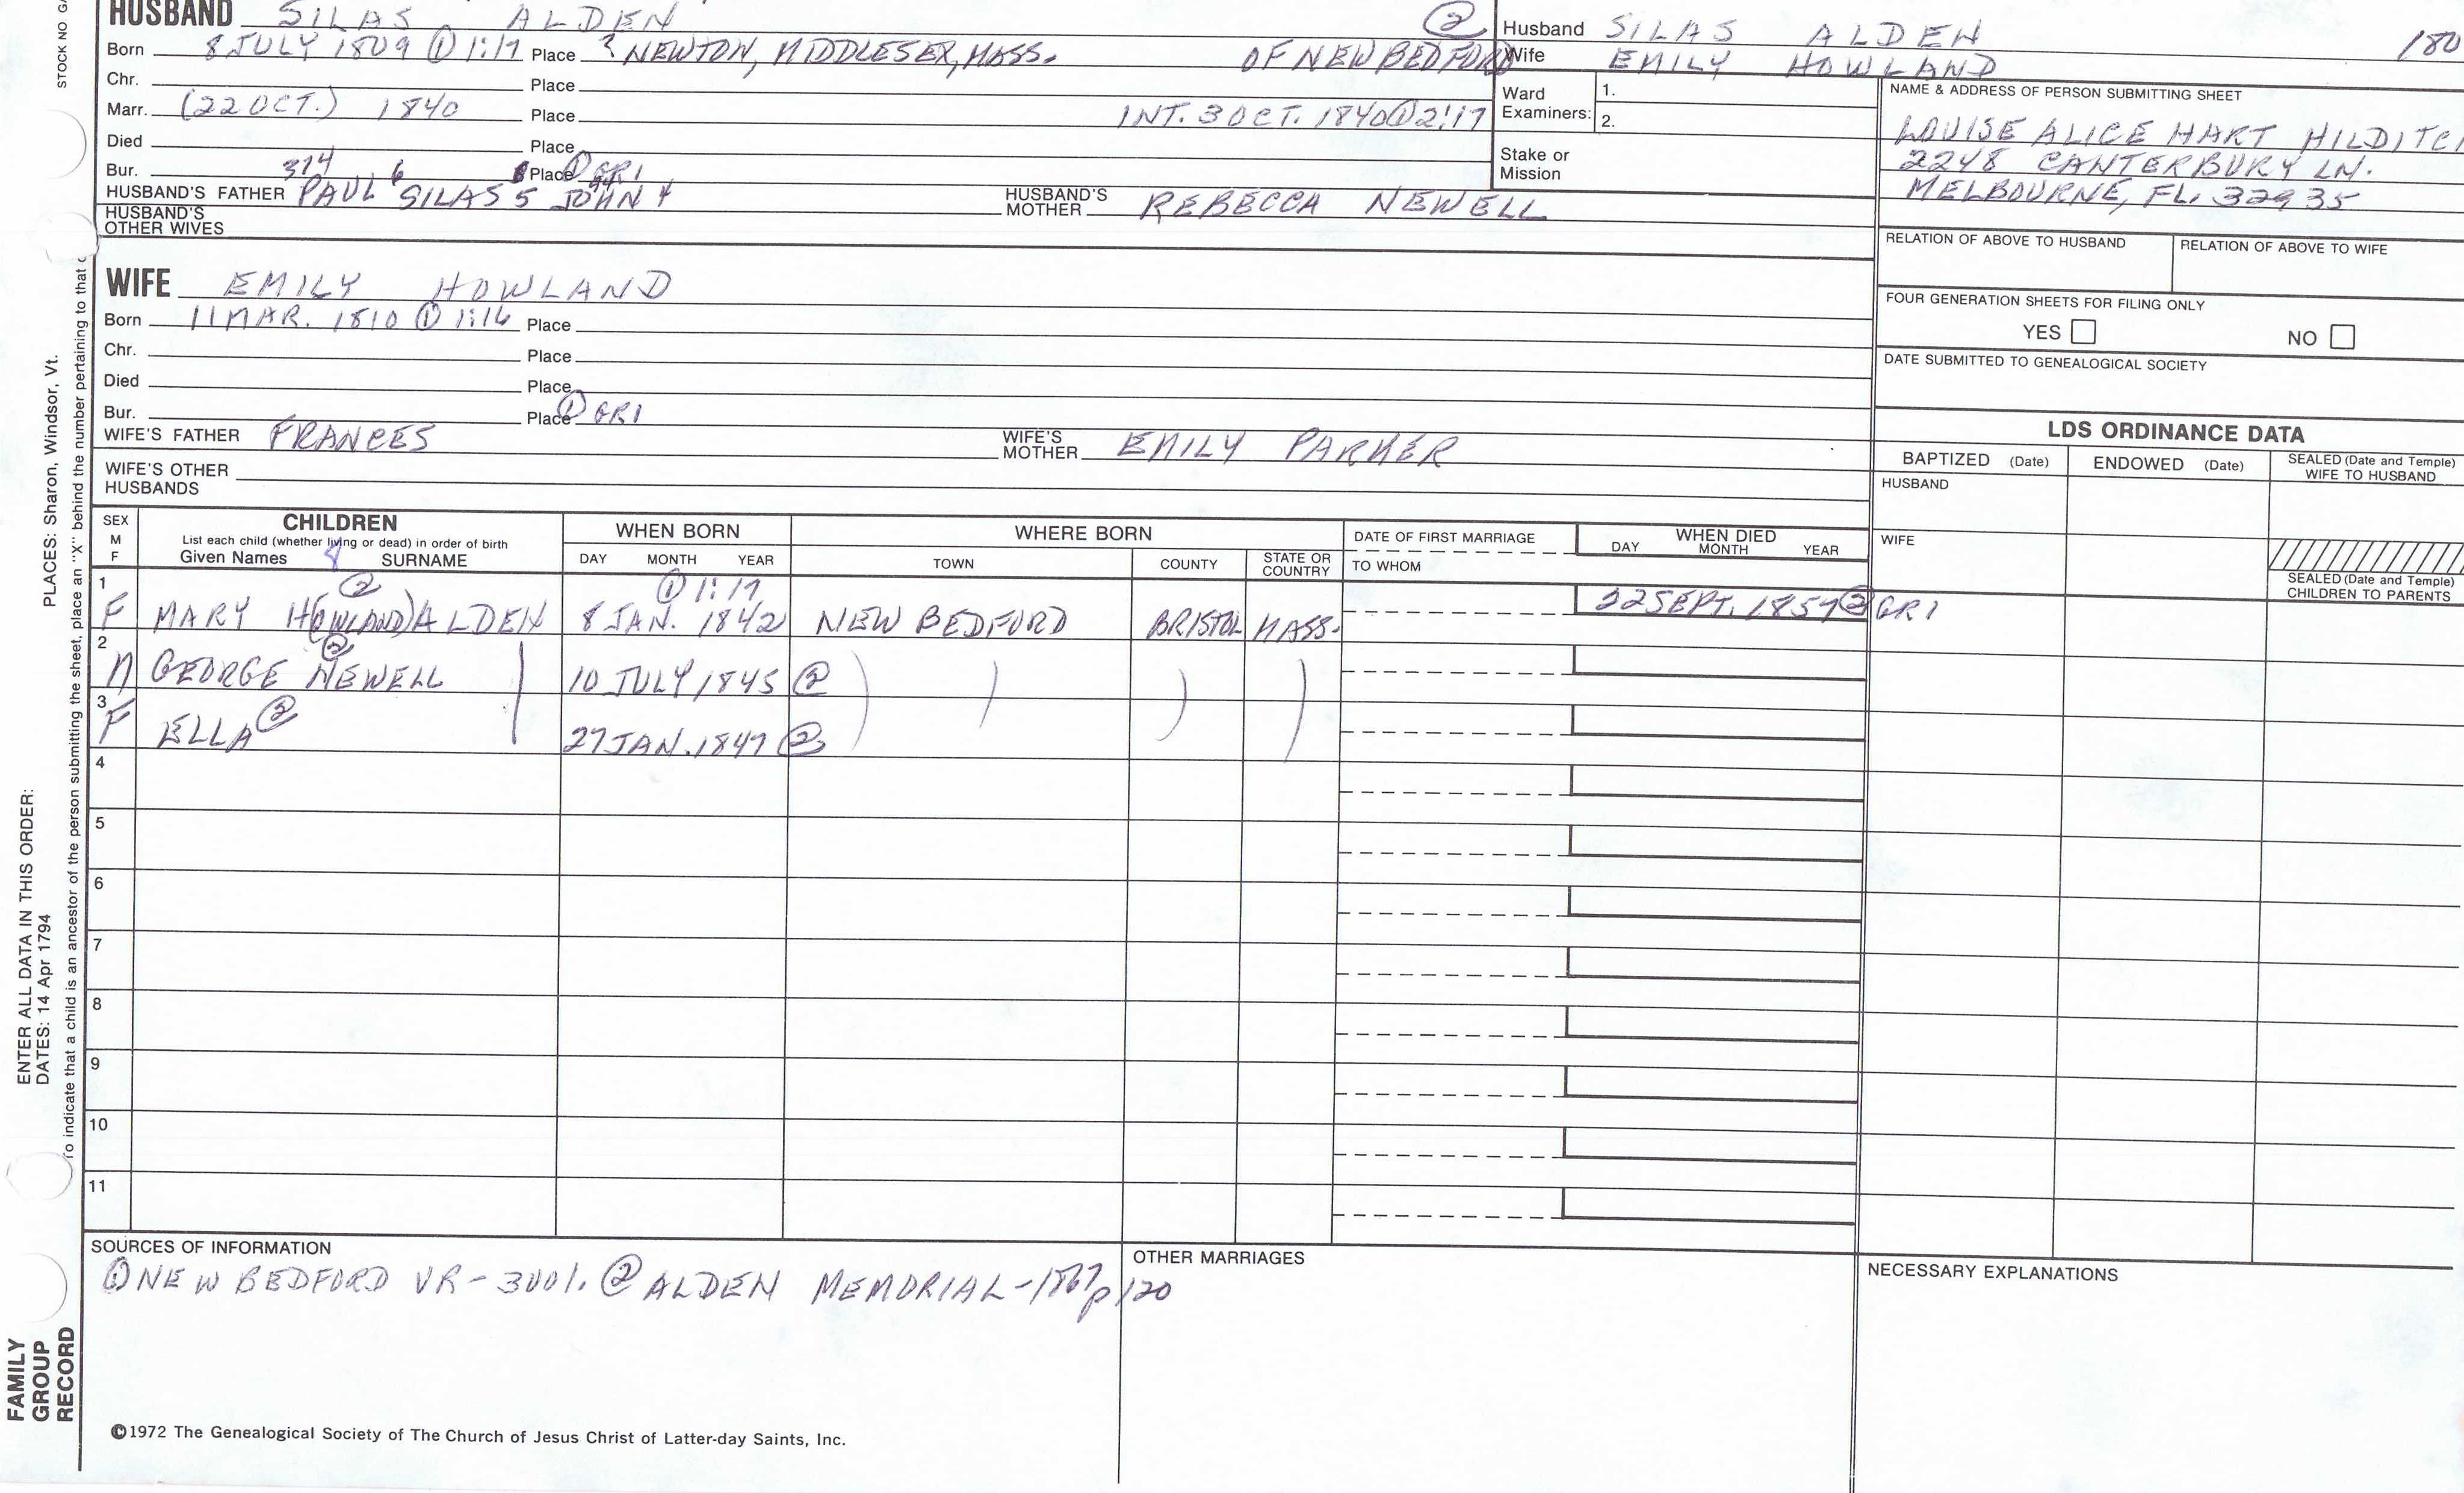 STOCK NO
HUSBAND SILAS ALDEN
Born 8 JULY 1809 ① 1:17 Place ? NEWTON, MIDDLESEX, MASS. OF NEW BEDFORD ②
Chr. Place
Marr. (22 OCT.) 1840 Place INT. 3 OCT. 1840 ① 2:17
Died Place
Bur. Place ① GRI
374 6
HUSBAND'S FATHER PAUL SILAS 5 JOHN 4 HUSBAND'S MOTHER REBECCA NEWELL
HUSBAND'S OTHER WIVES
Husband SILAS ALDEN 180
Wife EMILY HOWLAND
Ward Examiners: 1.
2.
Stake or Mission
NAME & ADDRESS OF PERSON SUBMITTING SHEET
LOUISE ALICE HART HILDITC
2248 CANTERBURY LN.
MELBOURNE, FL. 32935
RELATION OF ABOVE TO HUSBAND RELATION OF ABOVE TO WIFE
FOUR GENERATION SHEETS FOR FILING ONLY
YES NO
DATE SUBMITTED TO GENEALOGICAL SOCIETY
WIFE EMILY HOWLAND
Born 11 MAR. 1810 ① 1:16 Place
Chr. Place
Died Place
Bur. Place ① GRI
WIFE'S FATHER FRANCES WIFE'S MOTHER EMILY PARKER
WIFE'S OTHER HUSBANDS
LDS ORDINANCE DATA
BAPTIZED (Date) ENDOWED (Date) SEALED (Date and Temple) WIFE TO HUSBAND
HUSBAND
WIFE
SEALED (Date and Temple) CHILDREN TO PARENTS
SEX M F
CHILDREN
List each child (whether living or dead) in order of birth
Given Names SURNAME
WHEN BORN
DAY MONTH YEAR
WHERE BORN
TOWN COUNTY STATE OR COUNTRY
DATE OF FIRST MARRIAGE
TO WHOM
WHEN DIED
DAY MONTH YEAR
1 F MARY H(OWLAND) ALDEN ② 8 JAN. 1842 ① 1:17 NEW BEDFORD BRISTOL MASS. 22 SEPT. 1857 ② GRI
2 M GEORGE NEWELL ② 10 JULY 1845 ②
3 F ELLA ② 27 JAN. 1847 ②
4
5
6
7
8
9
10
11
SOURCES OF INFORMATION
① NEW BEDFORD VR - 3001. ② ALDEN MEMORIAL - 1867 p 120
OTHER MARRIAGES
NECESSARY EXPLANATIONS
©1972 The Genealogical Society of The Church of Jesus Christ of Latter-day Saints, Inc.
FAMILY GROUP RECORD
ENTER ALL DATA IN THIS ORDER:
DATES: 14 Apr 1794
PLACES: Sharon, Windsor, Vt.
To indicate that a child is an ancestor of the person submitting the sheet, place an "X" behind the number pertaining to that